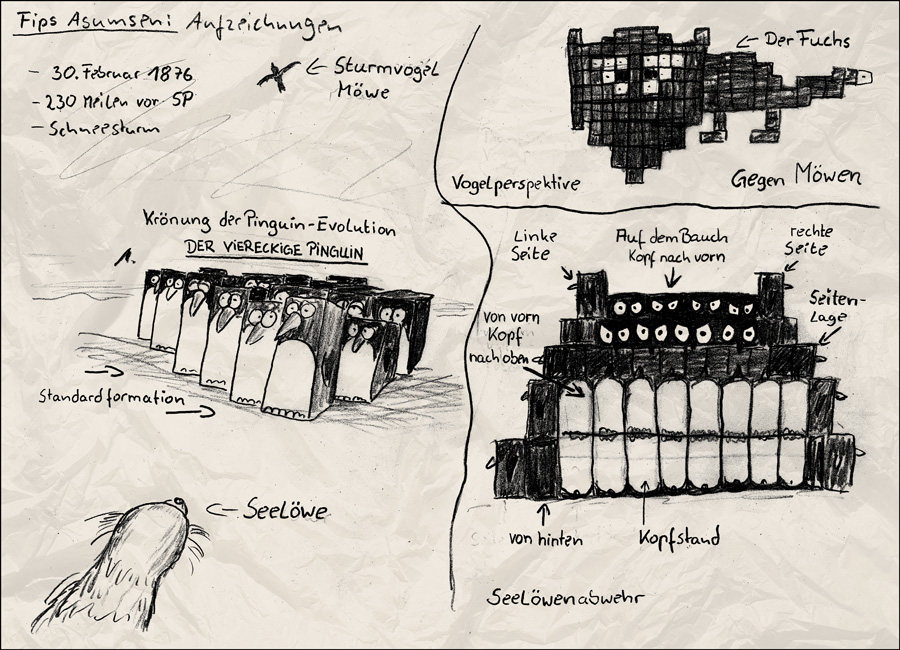 Fips Asumsen: Aufzeichnungen
- 30. Februar 1876
- 230 Meilen vor SP
- Schneesturm
Sturmvogel
Möwe
Der Fuchs
Vogelperspektive
Gegen Möwen
Krönung der Pinguin-Evolution
DER VIERECKIGE PINGUIN
1.
Standardformation
Seelöwe
Linke
Seite
Auf dem Bauch
Kopf nach vorn
rechte
Seite
Seiten-
Lage
von vorn
Kopf
nach oben
von hinten
Kopfstand
Seelöwenabwehr